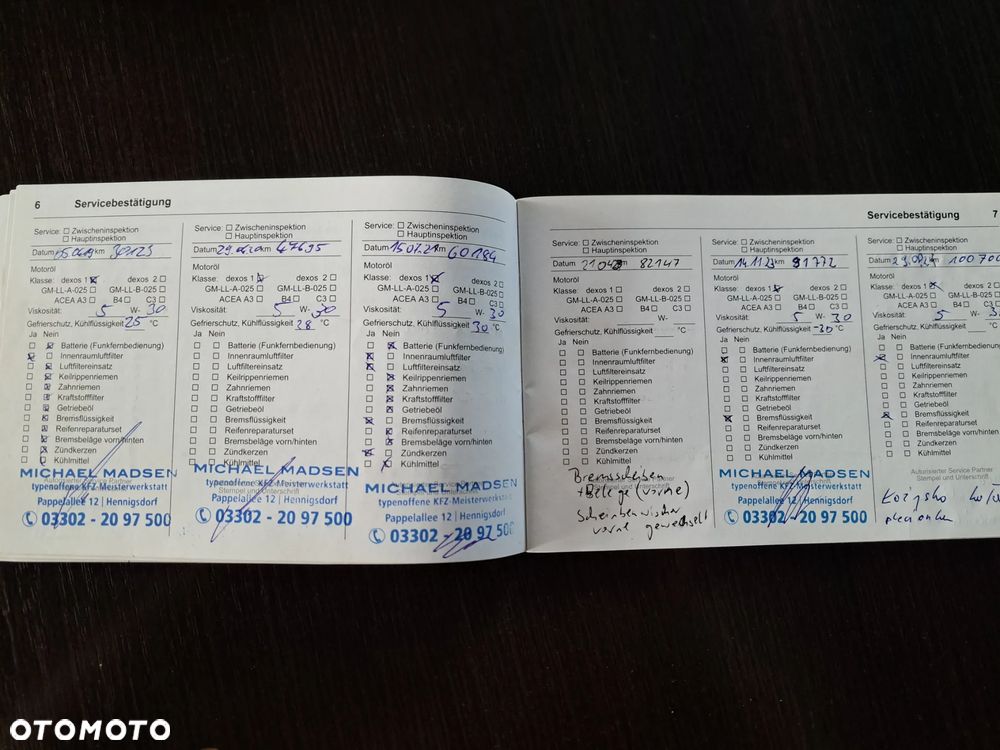 6 Servicebestätigung
Service: Zwischeninspektion
Hauptinspektion
Datum km 30123
Motoröl
Klasse: dexos 1 dexos 2
GM-LL-A-025 GM-LL-B-025
ACEA A3 B4 C3
Viskosität: 5 W- 30
Gefrierschutz, Kühlflüssigkeit 25 °C
Ja Nein
Batterie (Funkfernbedienung)
Innenraumluftfilter
Luftfiltereinsatz
Keilrippenriemen
Zahnriemen
Kraftstofffilter
Getriebeöl
Bremsflüssigkeit
Reifenreparaturset
Bremsbeläge vorn/hinten
Zündkerzen
Kühlmittel
MICHAEL MADSEN
typenoffene KFZ-Meisterwerkstatt
Pappelallee 12 | Hennigsdorf
03302 - 20 97 500
Service: Zwischeninspektion
Hauptinspektion
Datum km 47695
Motoröl
Klasse: dexos 1 dexos 2
GM-LL-A-025 GM-LL-B-025
ACEA A3 B4 C3
Viskosität: 5 W- 30
Gefrierschutz, Kühlflüssigkeit 28 °C
Ja Nein
Batterie (Funkfernbedienung)
Innenraumluftfilter
Luftfiltereinsatz
Keilrippenriemen
Zahnriemen
Kraftstofffilter
Getriebeöl
Bremsflüssigkeit
Reifenreparaturset
Bremsbeläge vorn/hinten
Zündkerzen
Kühlmittel
MICHAEL MADSEN
typenoffene KFZ-Meisterwerkstatt
Stempel und Unterschrift
Pappelallee 12 | Hennigsdorf
03302 - 20 97 500
Service: Zwischeninspektion
Hauptinspektion
Datum 15.07.21 km 60184
Motoröl
Klasse: dexos 1 dexos 2
GM-LL-A-025 GM-LL-B-025
ACEA A3 B4 C3
Viskosität: 5 W- 30
Gefrierschutz, Kühlflüssigkeit 30 °C
Ja Nein
Batterie (Funkfernbedienung)
Innenraumluftfilter
Luftfiltereinsatz
Keilrippenriemen
Zahnriemen
Kraftstofffilter
Getriebeöl
Bremsflüssigkeit
Reifenreparaturset
Bremsbeläge vorn/hinten
Zündkerzen
Kühlmittel
MICHAEL MADSEN
typenoffene KFZ-Meisterwerkstatt
Pappelallee 12 | Hennigsdorf
03302 - 20 97 500
Servicebestätigung 7
Service: Zwischeninspektion
Hauptinspektion
Datum km 82147
Motoröl
Klasse: dexos 1 dexos 2
GM-LL-A-025 GM-LL-B-025
ACEA A3 B4 C3
Viskosität: W-
Gefrierschutz, Kühlflüssigkeit °C
Ja Nein
Batterie (Funkfernbedienung)
Innenraumluftfilter
Luftfiltereinsatz
Keilrippenriemen
Zahnriemen
Kraftstofffilter
Getriebeöl
Bremsflüssigkeit
Reifenreparaturset
Bremsbeläge vorn/hinten
Zündkerzen
Kühlmittel
Bremsscheiben
+ Beläge (vorne)
Stempel und Unterschrift
Scheibenwischer
vorne gewechselt
Service: Zwischeninspektion
Hauptinspektion
Datum 14.11.23 km 91772
Motoröl
Klasse: dexos 1 dexos 2
GM-LL-A-025 GM-LL-B-025
ACEA A3 B4 C3
Viskosität: 5 W- 30
Gefrierschutz, Kühlflüssigkeit -30 °C
Ja Nein
Batterie (Funkfernbedienung)
Innenraumluftfilter
Luftfiltereinsatz
Keilrippenriemen
Zahnriemen
Kraftstofffilter
Getriebeöl
Bremsflüssigkeit
Reifenreparaturset
Bremsbeläge vorn/hinten
Zündkerzen
Kühlmittel
MICHAEL MADSEN
typenoffene KFZ-Meisterwerkstatt
Pappelallee 12 | Hennigsdorf
03302 - 20 97 500
Service: Zwischeninspektion
Hauptinspektion
Datum km 100700
Motoröl
Klasse: dexos 1 dexos 2
GM-LL-A-025 GM-LL-B-025
ACEA A3 B4 C3
Viskosität: 5 W-
Gefrierschutz, Kühlflüssigkeit
Ja Nein
Batterie (Funkfernbedienung)
Innenraumluftfilter
Luftfiltereinsatz
Keilrippenriemen
Zahnriemen
Kraftstofffilter
Getriebeöl
Bremsflüssigkeit
Reifenreparaturset
Bremsbeläge vorn/hinten
Zündkerzen
Kühlmittel
Autorisierter Service Partner
Stempel und Unterschrift
OTOMOTO